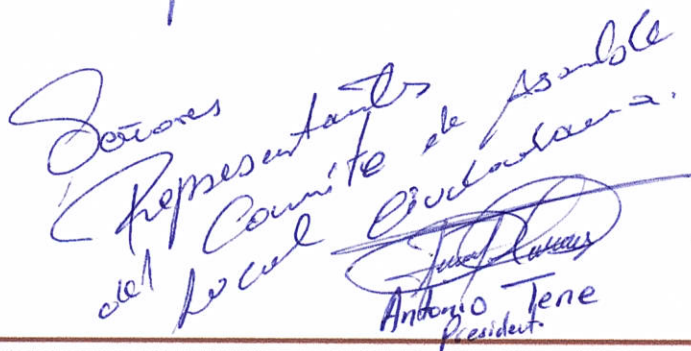 Señores
Representantes
del Comite de Asamblea
Local Ciudadana.
Antonio Tene
President